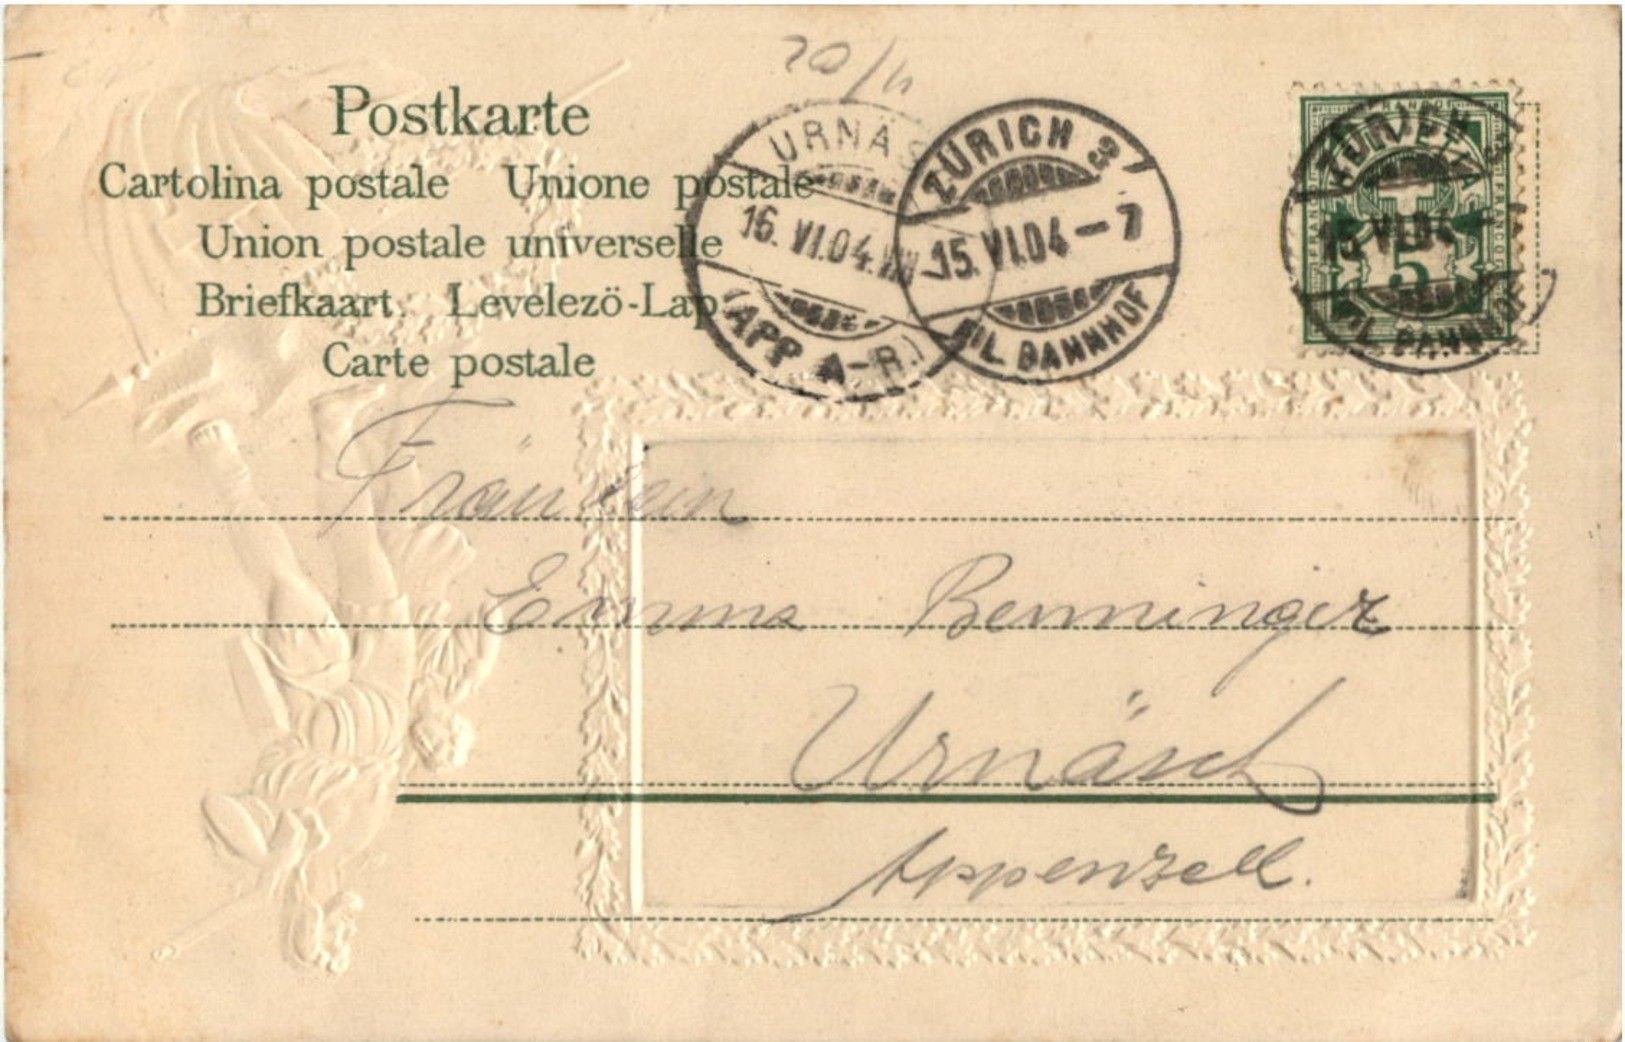 20/11
Postkarte
Cartolina postale Unione postale
Union postale universelle
Briefkaart. Levelezö-Lap
Carte postale
URNÄS
16. VI.04.
(APP A-R.)
ZÜRICH 3
15. VI.04 - 7
FIL. BAHNHOF
FRANCO
ZÜRICH 3
15. VI.04
5
FIL. BAHNHOF
Fräulein
Emma Benninger
Urnäsch
Appenzell.